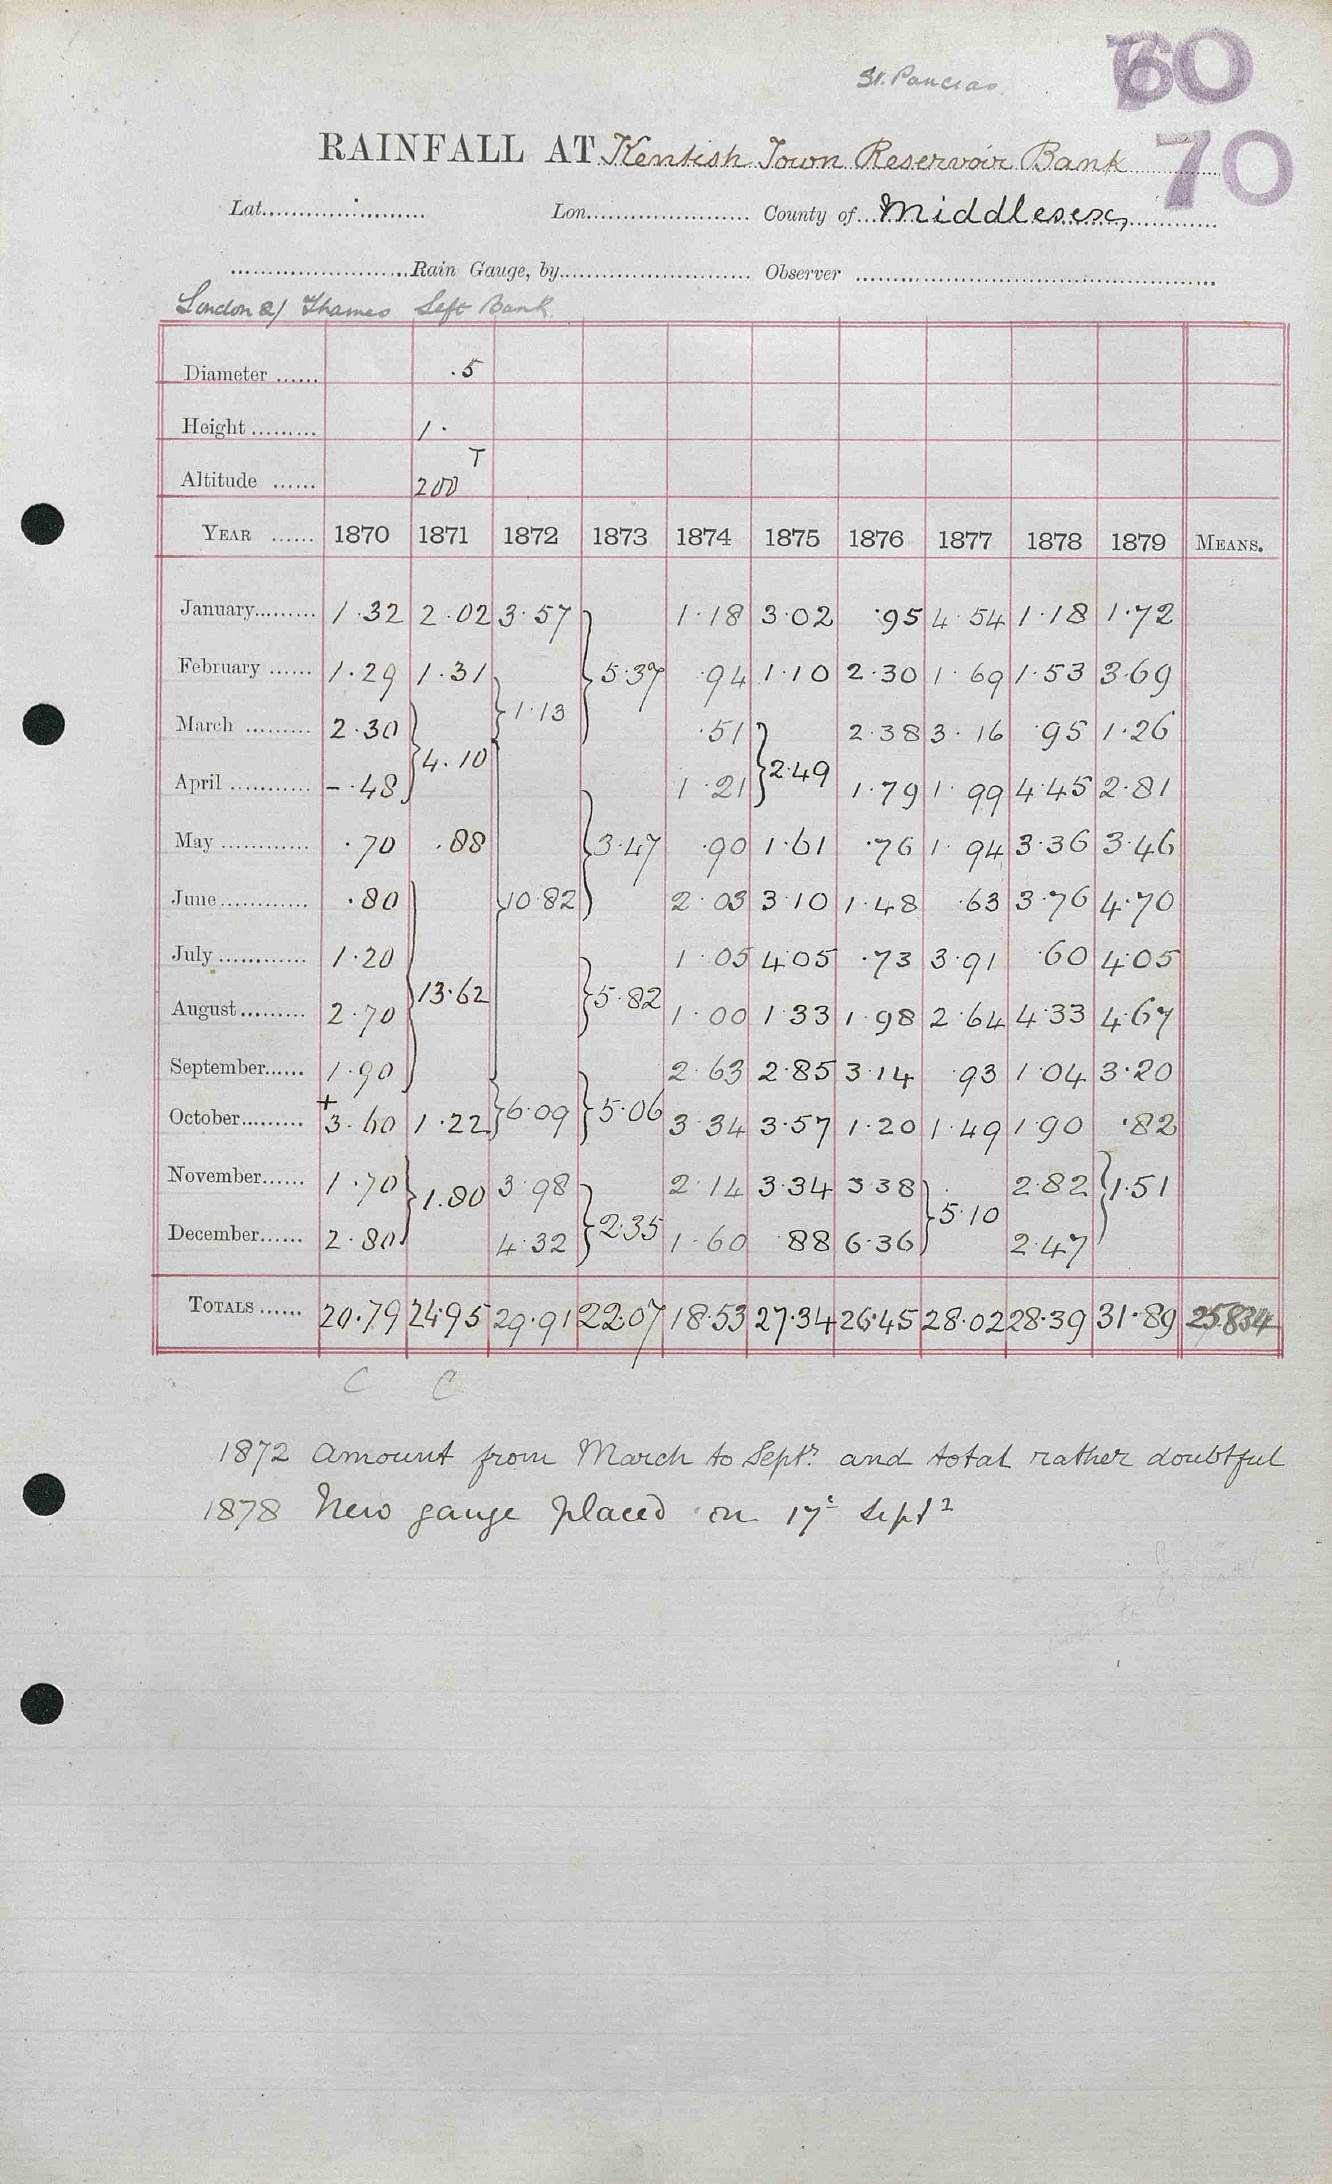 St. Pancras
60
70
RAINFALL AT Kentish Town Reservoir Bank
Lat. Lon. County of Middlesex
Rain Gauge, by Observer
London / Thames Left Bank
Diameter ...... .5
Height ......... 1.
Altitude ...... 200 T
YEAR ...... 1870 1871 1872 1873 1874 1875 1876 1877 1878 1879 MEANS.
January......... 1.32 2.02 3.57 1.18 3.02 .95 4.54 1.18 1.72
February ...... 1.29 1.31 } 1.13 } 5.37 .94 1.10 2.30 1.69 1.53 3.69
March ......... 2.30 .51 2.38 3.16 .95 1.26
April ........... -.48 } 4.10 1.21 } 2.49 1.79 1.99 4.45 2.81
May ............ .70 .88 } 3.47 .90 1.61 .76 1.94 3.36 3.46
June............ .80 } 10.82 2.03 3.10 1.48 .63 3.76 4.70
July ............ 1.20 1.05 4.05 .73 3.91 .60 4.05
August......... 2.70 } 13.62 } 5.82 1.00 1.33 1.98 2.64 4.33 4.67
September...... 1.90 2.63 2.85 3.14 .93 1.04 3.20
October......... + 3.60 1.22 } 6.09 } 5.06 3.34 3.57 1.20 1.49 1.90 .82
November...... 1.70 } 1.80 3.98 2.14 3.34 3.38 2.82 } 1.51
December...... 2.80 4.32 } 2.35 1.60 .88 6.36 } 5.10 2.47
TOTALS ...... 20.79 24.95 29.91 22.07 18.53 27.34 26.45 28.02 28.39 31.89 25.834
C C
1872 Amount from March to Septr. and total rather doubtful
1878 New gauge placed on 17 Sept